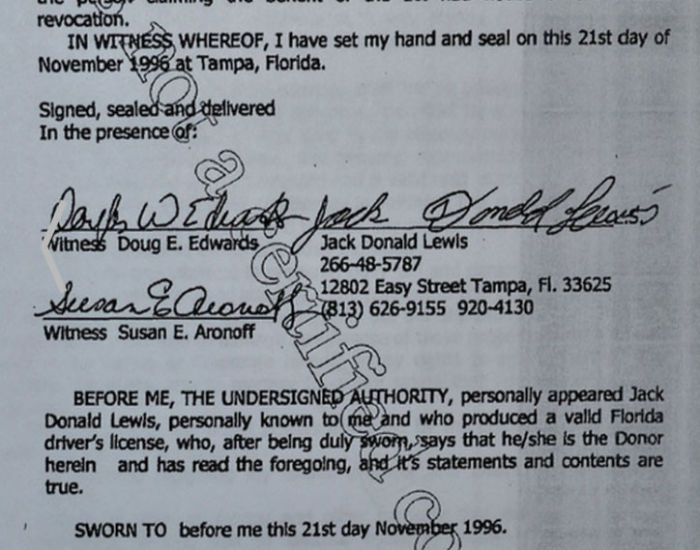 claiming the benefit of the
revocation.
IN WITNESS WHEREOF, I have set my hand and seal on this 21st day of
November 1996 at Tampa, Florida.
Signed, sealed and delivered
In the presence of:
W Edwards Jack Donald Lewis
Witness Doug E. Edwards Jack Donald Lewis
266-48-5787
12802 Easy Street Tampa, Fl. 33625
Susan E Aronoff (813) 626-9155 920-4130
Witness Susan E. Aronoff
BEFORE ME, THE UNDERSIGNED AUTHORITY, personally appeared Jack
Donald Lewis, personally known to me and who produced a valid Florida
driver's license, who, after being duly sworn, says that he/she is the Donor
herein and has read the foregoing, and it's statements and contents are
true.
SWORN TO before me this 21st day November 1996.